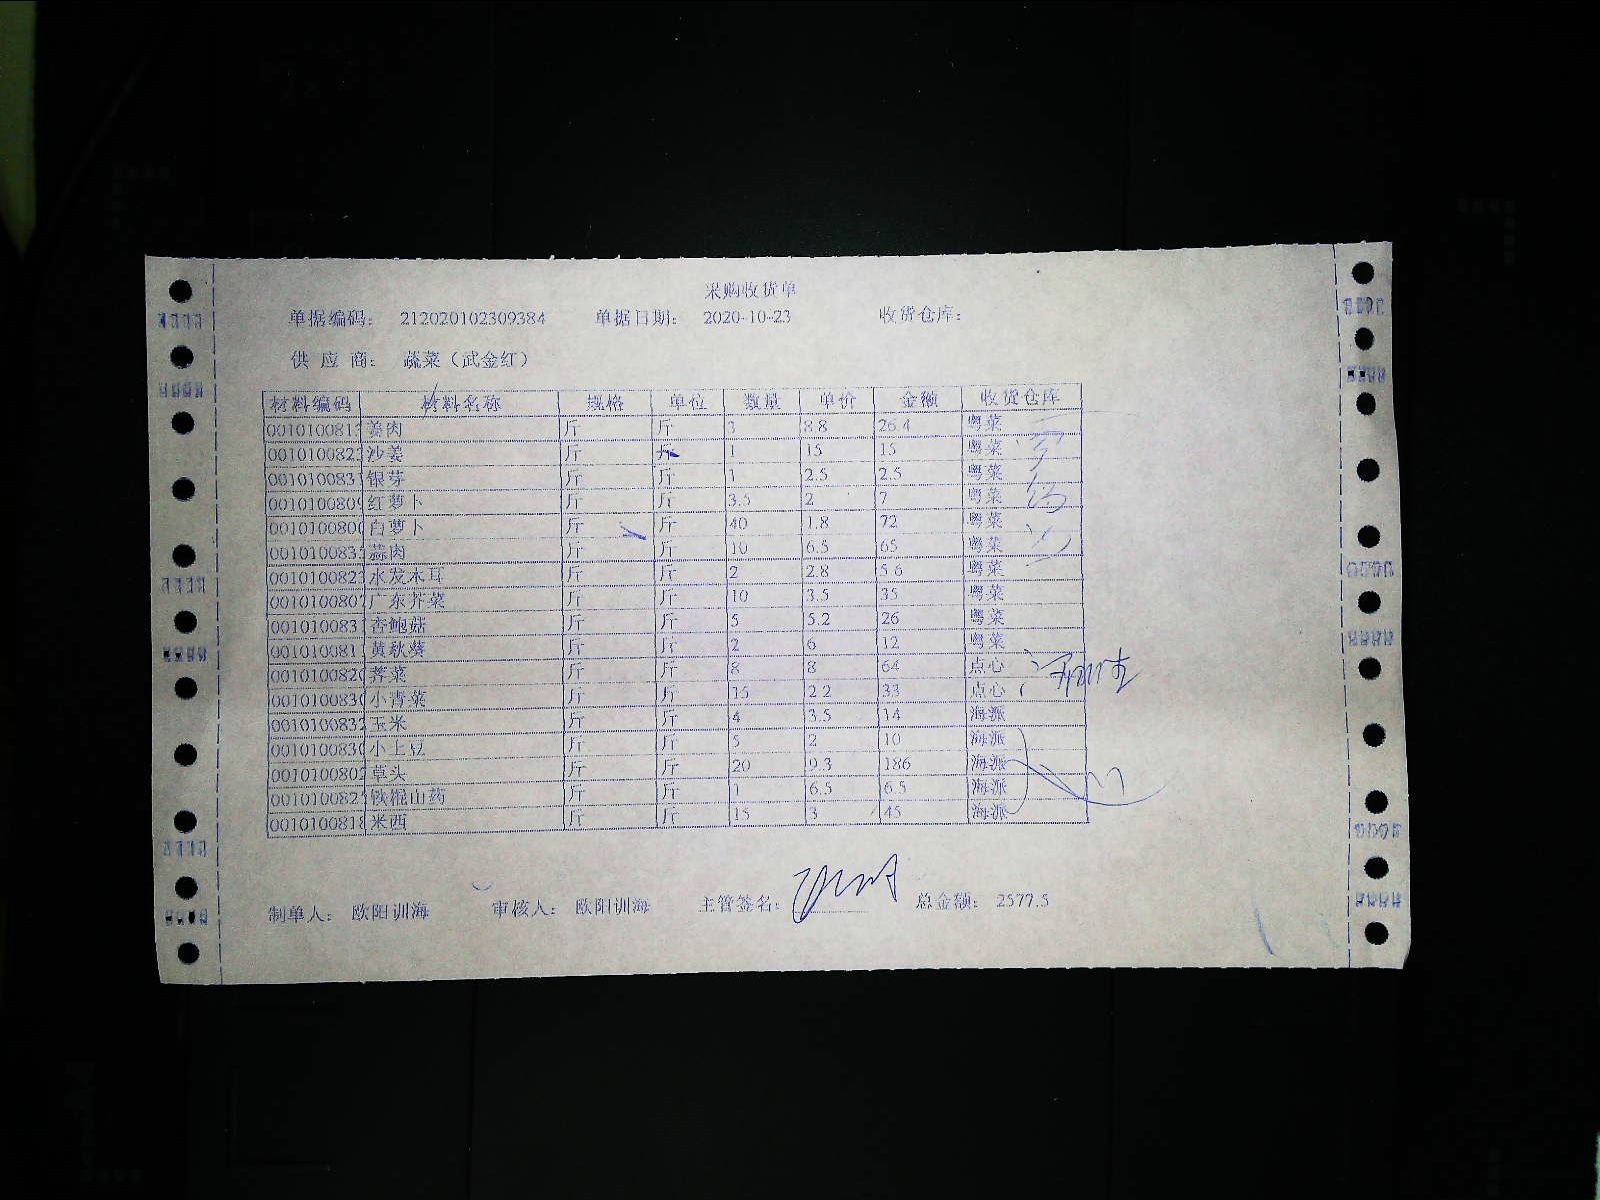 采购收货单
单据编码： 212020102309384 单据日期： 2020-10-23 收货仓库：
供 应 商： 蔬菜（武金红）
材料编码 材料名称 规格 单位 数量 单价 金额 收货仓库
001010081 姜肉 斤 斤 3 8.8 26.4 粤菜
001010082 沙姜 斤 斤 1 15 15 粤菜
001010083 银芽 斤 斤 1 2.5 2.5 粤菜
001010080 红萝卜 斤 斤 3.5 2 7 粤菜
001010080 白萝卜 斤 斤 40 1.8 72 粤菜
001010083 蒜肉 斤 斤 10 6.5 65 粤菜
001010082 水发木耳 斤 斤 2 2.8 5.6 粤菜
001010080 广东芥菜 斤 斤 10 3.5 35 粤菜
001010083 杏鲍菇 斤 斤 5 5.2 26 粤菜
001010081 黄秋葵 斤 斤 2 6 12 粤菜
001010082 荠菜 斤 斤 8 8 64 点心
001010083 小青菜 斤 斤 15 2.2 33 点心
001010083 玉米 斤 斤 4 3.5 14 海派
001010083 小土豆 斤 斤 5 2 10 海派
001010080 草头 斤 斤 20 9.3 186 海派
001010082 铁棍山药 斤 斤 1 6.5 6.5 海派
001010081 米西 斤 斤 15 3 45 海派
制单人： 欧阳训海 审核人： 欧阳训海 主管签名： 总金额： 2577.5